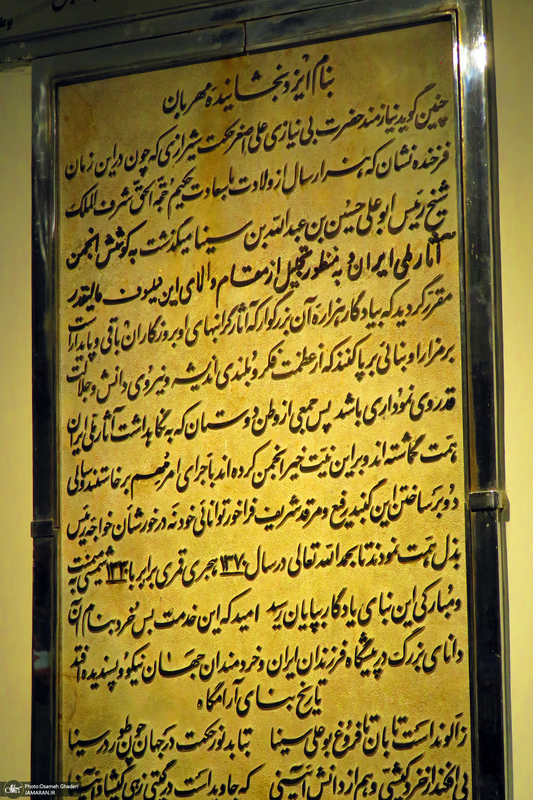 بنام ایزد بخشاینده مهربان
چنین گوید نیازمند حضرت بی نیازی علی اصغر حکمت شیرازی که چون در این زمان
فرخنده نشان که هزار سال از ولادت با سعادت حکیم حجة الحق شرف الملک
شیخ رئیس ابو علی حسین بن عبدالله بن سینا میگذشت به کوشش انجمن
آثار ملی ایران و به منظور تجلیل از مقام والای این فیلسوف عالیقدر
مقرر گردید که بیادگار هزاره آن بزرگوار که آثار گرانبهای او بروزگاران باقی و پایدار است
بر مزار او بنائی برپا کنند که از عظمت فکر و بلندی اندیشه و نیروی دانش و جلالت
قدر وی نموداری باشد پس جمعی از وطن دوستان که به نگاهداشت آثار ملی ایران
همت گماشته اند و بر این نیت خیر انجمن کرده اند باجرای امر مهم برخاستند و سالی
دو بر ساختن این گنبد رفیع و مرقد شریف فراخور توانائی خود نه در خور شان خواجه رئیس
بذل همت نمودند تا بحمدالله تعالی در سال ۱۳۷۰ هجری قمری برابر با ۱۳۳۰ شمسی به میمنت
و مبارکی این بنای یادگار بپایان رسید امید که این خدمت بس خرد بنام آن
دانای بزرگ در پیشگاه فرزندان ایران و خردمندان جهان نیکو و پسندیده افتد
تاریخ بنای آرامگاه
ز الوند است تابان تا فروغ بو علی سینا بتابد نور حکمت در جهان چون طور در سینا
که جاوید است در گیتی
Photo:Osameh Ghaderi
JAMARAN.IR